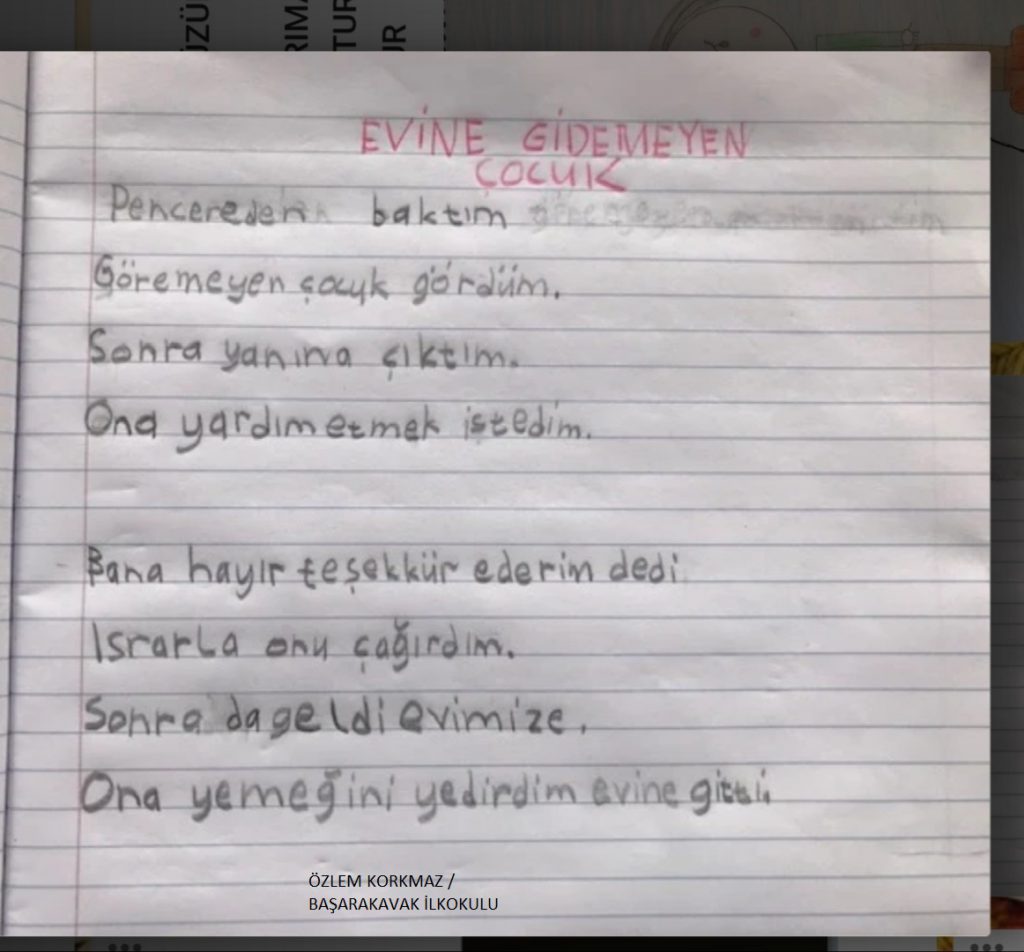 ÜZÜ
TUR
UR
EVİNE GİDEMEYEN
ÇOCUK
Pencereden baktım
Göremeyen çocuk gördüm.
Sonra yanına çıktım.
Ona yardım etmek istedim.
Bana hayır teşekkür ederim dedi
Israrla onu çağırdım.
Sonra da geldi evimize.
Ona yemeğini yedirdim evine gitti.
ÖZLEM KORKMAZ /
BAŞARAKAVAK İLKOKULU